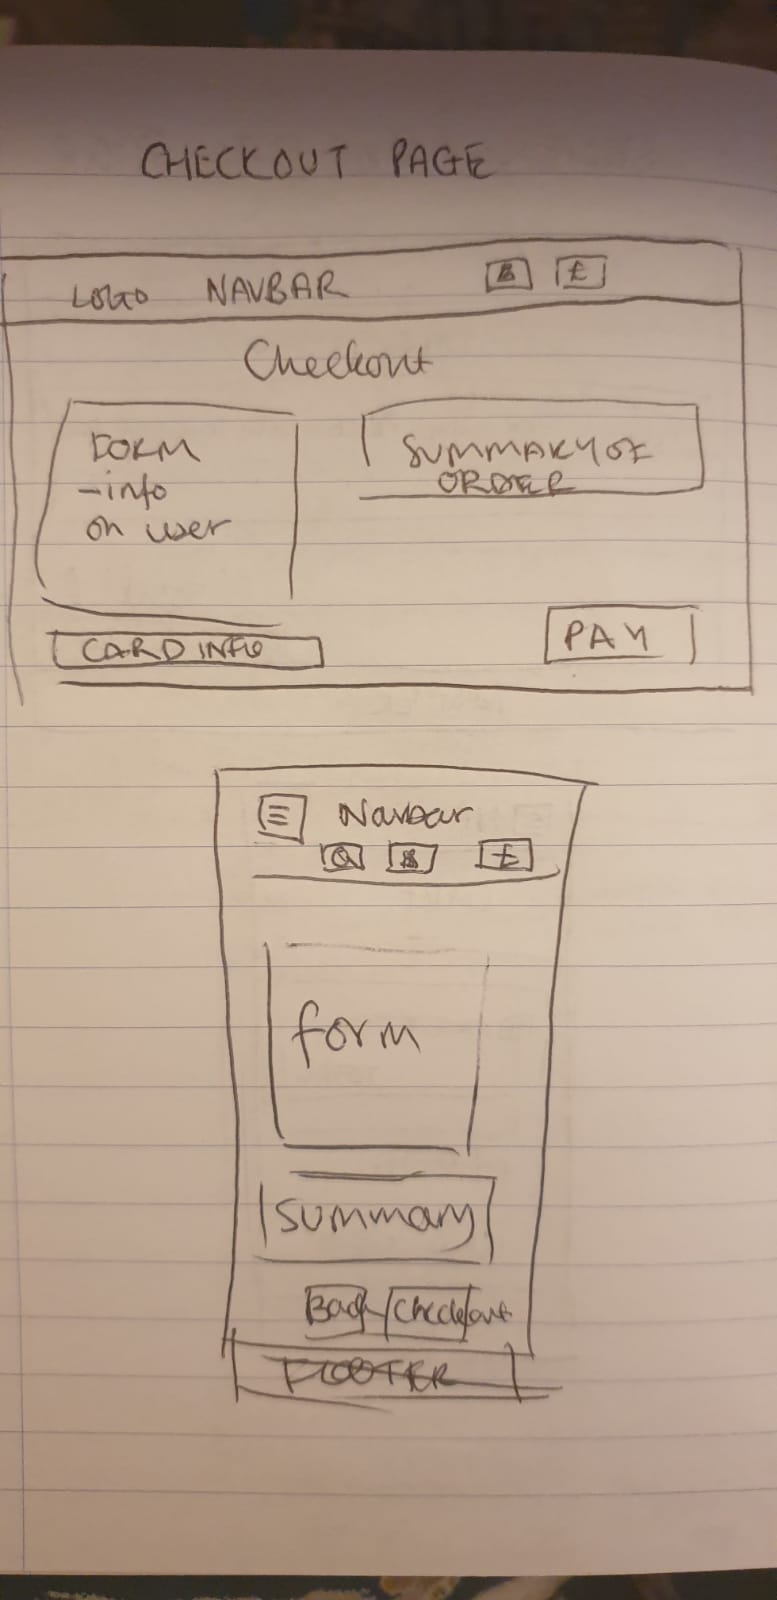 CHECKOUT PAGE
LOGO NAVBAR £
Checkout
FORM
-info
on user
SUMMARY OF
ORDER
CARD INFO
PAY
Navbar
£
form
summary
Back Checkout
FOOTER